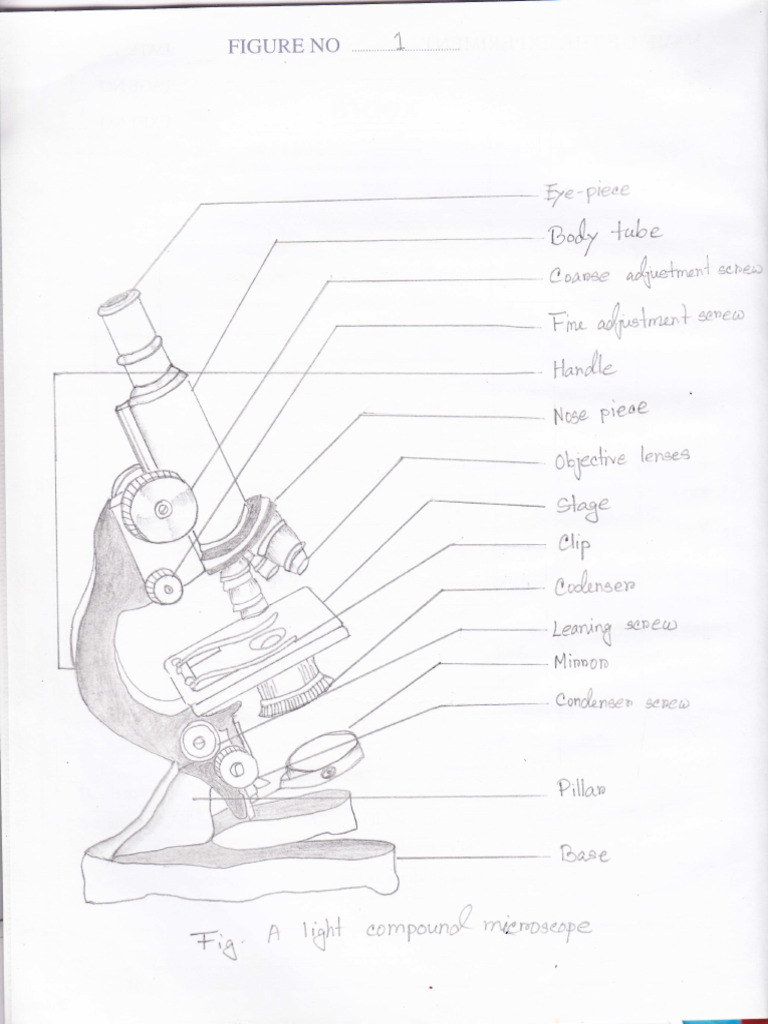 FIGURE NO 1
Eye-piece
Body tube
Coarse adjustment screw
Fine adjustment screw
Handle
Nose piece
Objective lenses
Stage
Clip
Codenser
Leaning screw
Mirror
Condenser screw
Pillar
Base
Fig. A light compound microscope